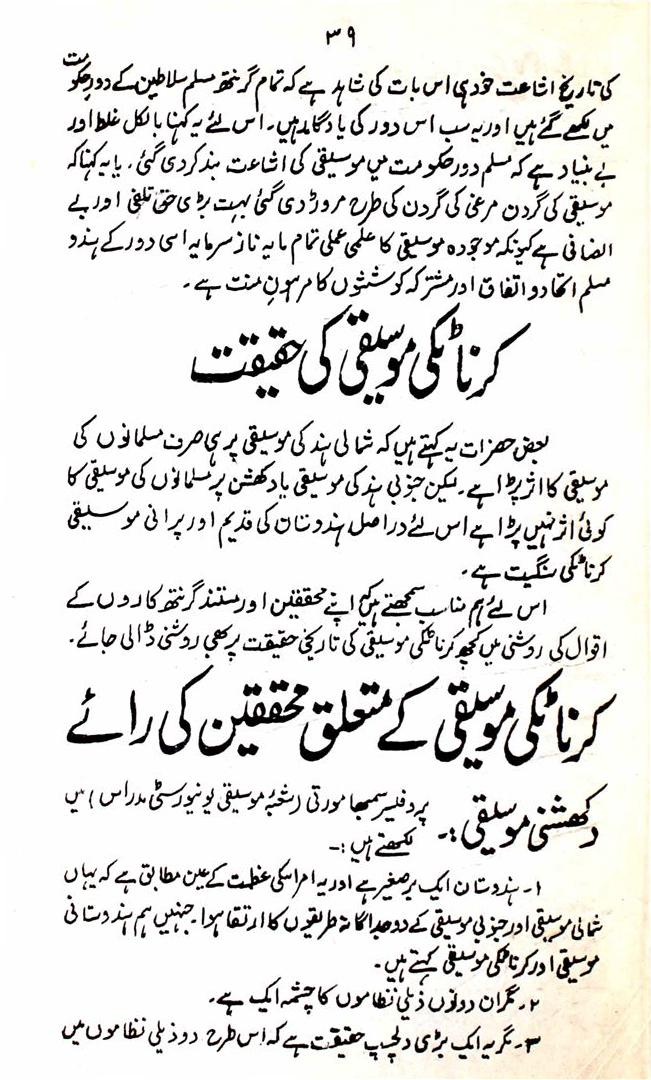 ۳۹
کی تاریخ اشاعت خود ہی اس بات کی شاہد ہے کہ تمام گرنتھ مسلم سلاطین کے دورِ حکومت
میں لکھے گئے ہیں اور یہ سب اس دور کی یادگار ہیں۔ اس لئے یہ کہنا بالکل غلط اور
بے بنیاد ہے کہ مسلم دور حکومت میں موسیقی کی اشاعت بند کر دی گئی، یا یہ کہنا کہ
موسیقی کی گردن مرغی کی گردن کی طرح مروڑ دی گئی بہت بڑی حق تلفی اور بے
انصافی ہے کیونکہ موجودہ موسیقی کا علمی عملی تمام مایہ ناز سرمایہ اسی دور کے ہندو
مسلم اتحاد و اتفاق اور مشترکہ کوششوں کا مرہونِ منت ہے۔
کرناٹکی موسیقی کی حقیقت
بعض حضرات یہ کہتے ہیں کہ شمالی ہند کی موسیقی پر ہی صرف مسلمانوں کی
موسیقی کا اثر پڑا ہے۔ لیکن جنوبی ہند کی موسیقی یا دکھشن پر مسلمانوں کی موسیقی کا
کوئی اثر نہیں پڑا ہے اس لئے دراصل ہندوستان کی قدیم اور پرانی موسیقی
کرناٹکی سنگیت ہے۔
اس لئے ہم مناسب سمجھتے ہیں کہ اپنے محققین اور مستند گرنتھ کاروں کے
اقوال کی روشنی میں کچھ کرناٹکی موسیقی کی تاریخی حقیقت پر بھی روشنی ڈالی جائے۔
کرناٹکی موسیقی کے متعلق محققین کی رائے
دکھشنی موسیقی :۔ پروفیسر سمبھا مورتی (شعبۂ موسیقی یونیورسٹی مدراس) میں
لکھتے ہیں :۔
۱۔ ہندوستان ایک برصغیر ہے اور یہ امر اسکی عظمت کے عین مطابق ہے کہ یہاں
شمالی موسیقی اور جنوبی موسیقی کے دو جداگانہ طریقوں کا ارتقا ہوا۔ جنہیں ہم ہندوستانی
موسیقی اور کرناٹکی موسیقی کہتے ہیں۔
۲۔ مگر ان دونوں ذیلی نظاموں کا چشمہ ایک ہے۔
۳۔ مگر یہ ایک بڑی دلچسپ حقیقت ہے کہ اس طرح دو ذیلی نظاموں میں